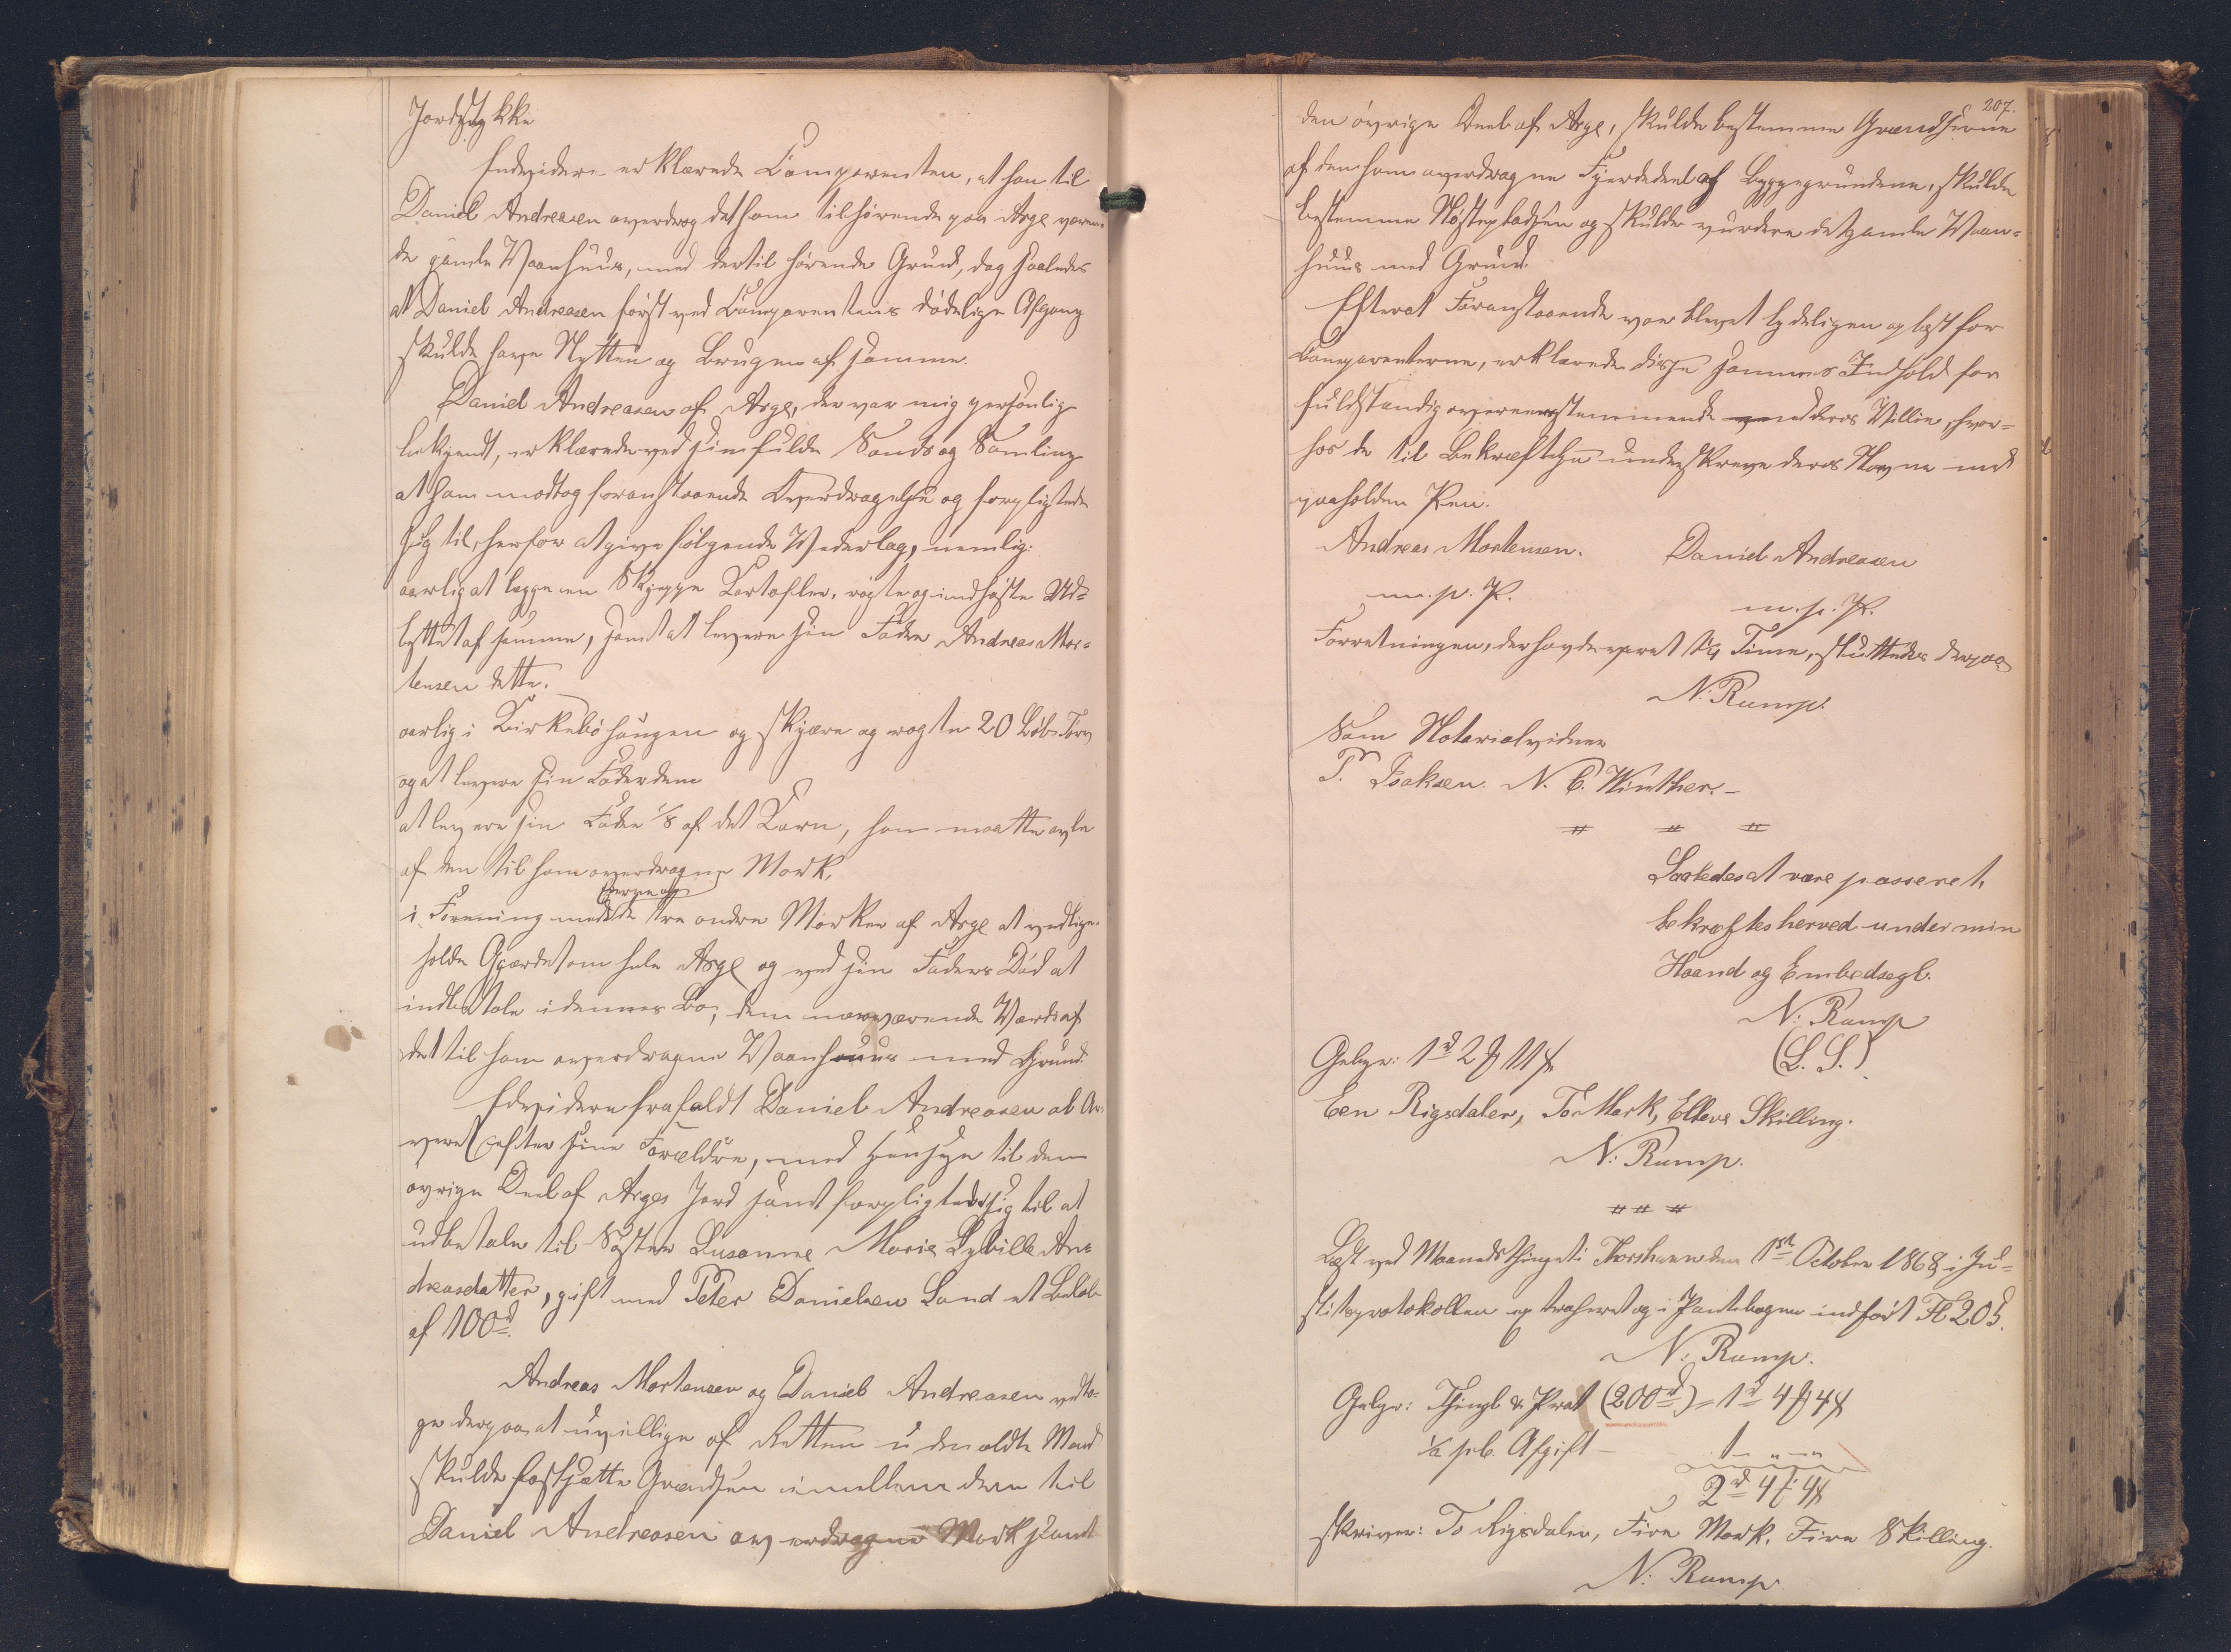 Jordstykke
Endvidere erklærede Comparenten, at han til
Daniel Andreasen overdrog det ham tilhørende paa Arge væren-
de gamle Vaanhuus, med dertil hørende Grund, dog saaledes
at Daniel Andreasen først ved Comparentens dødelige Afgang
skulde have Nytten og Brugen af samme.
Daniel Andreasen af Arge, der var mig personlig
bekjendt, erklærede ved sin fulde Sands og Samling
at han modtog foranstaaende Overdragelse og forpligtede
sig til, herfor at give følgende Vederlag, nemlig:
aarlig at lægge en Skjeppe Kartofler, røgte og indhøste Ud-
byttet af samme, samt at levere sin Fader Andreas Mor-
tensen dette.
aarlig i Kirkebøhaugen og skjære og røgte 20 Løb Törv
og at levere sin Fader dem
at levere sin Fader 1/8 af det Korn, han maatte avle
af den til ham overdragne Mark.
i Forening med de tre andre Marker af Arge at vedlige-
holde Gjærdet om hele Arge og ved sin Faders Død at
indbetale i dennes Bo, den nuværende Værdi af
det til ham overdragne Vaanhuus med Grund.
Edvidere frafaldt Daniel Andreasen al Ar-
veret efter sine Forældre, med Hensyn til den
øvrige Deel af Arges Jord samt forpligtede sig til at
udbetale til Søster Susanne Marie Sybille An-
dreasdatter, gift med Peter Danielsen Sand et Beløb
af 100 rd.
Andreas Mortensen og Daniel Andreasen vedto-
ge derpaa at uvillige af Retten udmeldte Mænd
skulde fastsætte Grændsen imellem den til
Daniel Andreasen overdragne Mark samt
207.
den øvrige Deel af Arge, skulde bestemme Grændserne
af den ham overdragne Fjerdedeel af Byggegrundene, skulde
bestemme Høstepladsen og skulde vurdere det gamle Vaan-
huus med Grund.
Efterat Foranstaaende var blevet lydeligen oplæst for
Comparenterne, erklærede disse sammes Indhold for
fuldstændig overeensstemmende med deres Villie, hvor-
hos de til Bekræftelse underskreve deres Navne med
paaholden Pen.
Andreas Mortensen. Daniel Andreasen
m. p. P. m. p. P.
Forretningen, der havde varet 1/4 Time, sluttedes derpaa
N: Rump.
Som Notarialvidner
P. Isaksen. N. C. Winther.-
# # #
Saaledes at være passeret,
bekræftes herved under min
Haand og Embedsegl.
N: Rump
(L. S.)
Gebyr: 1 rd 2 ₰ 11 ß
Een Rigsdaler, To Mark, Elleve Skilling.
N: Rump.
# # #
Læst ved Maanedsthinget i Thorshavn den 1st October 1868, i Ju-
stitsprotokollen extraheret og i Pantebogen indført Fl 205.
N: Rump.
Gebyr: Thingl & Prot (200 rd) = 1 rd 4 ₰ 4 ß
1/2 prC. Afgift - 1 - " - "
2 rd 4 ₰ 4 ß
skriver: To Rigsdaler, Fire Mark, Fire Skilling.
N: Rump.